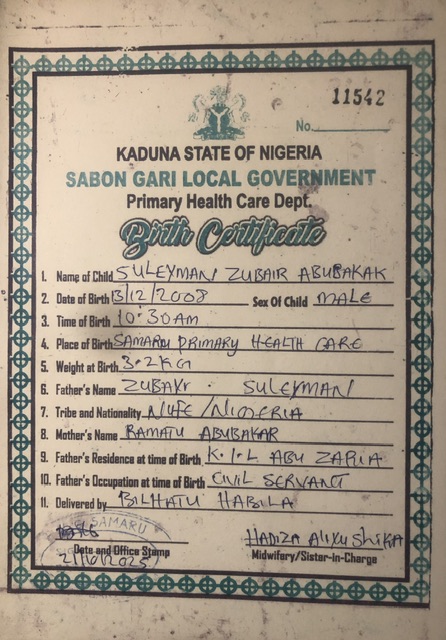 11542
No.
KADUNA STATE OF NIGERIA
SABON GARI LOCAL GOVERNMENT
Primary Health Care Dept.
Birth Certificate
1. Name of Child SULEYMAN ZUBAIR ABUBAKAR
2. Date of Birth 13/12/2008 Sex Of Child MALE
3. Time of Birth 10:30AM
4. Place of Birth SAMARU PRIMARY HEALTH CARE
5. Weight at Birth 3.2KG
6. Father's Name ZUBAYR SULEYMAN
7. Tribe and Nationality NUFE/NIGERIA
8. Mother's Name RAMATU ABUBAKAR
9. Father's Residence at time of Birth K.I.L ABU ZARIA
10. Father's Occupation at time of Birth CIVIL SERVANT
11. Delivered by BILHATU HABILA
SAMARU
HADIZA ALIYU SHIKA
Date and Office Stamp Midwifery/Sister-In-Charge
2/10/2025